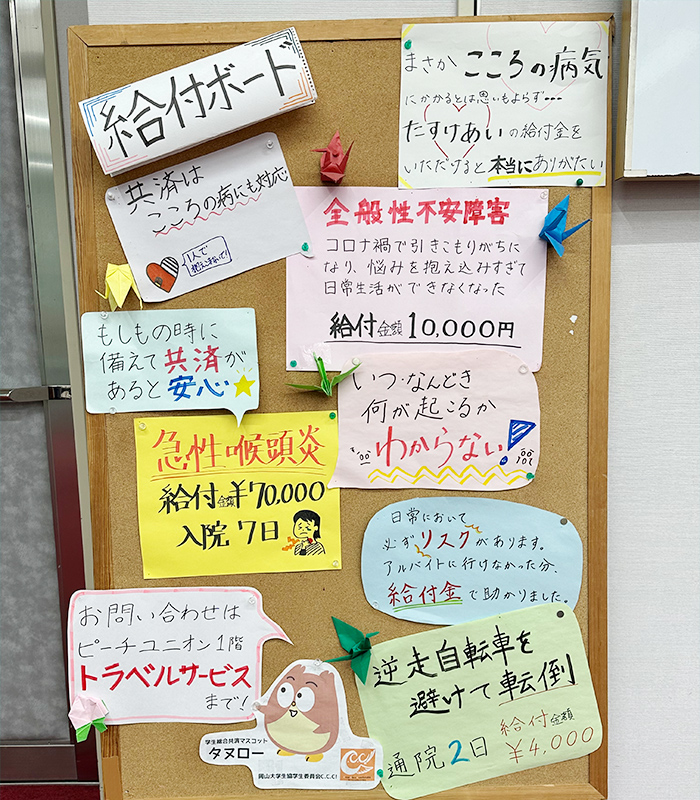 給付ボード
まさか こころの病気
にかかるとは思いもよらず…
たすけあいの給付金を
いただけると本当にありがたい
共済は
こころの病にも対応
1人で
抱えこまないで!
全般性不安障害
コロナ禍で引きこもりがちに
なり、悩みを抱え込みすぎて
日常生活ができなくなった
給付金額10,000円
もしもの時に
備えて共済が
あると安心
いつ・なんどき
何が起こるか
わからない!
急性喉頭炎
給付金額¥70,000
入院7日
日常において
必ずリスクがあります。
アルバイトに行けなかった分、
給付金で助かりました。
お問い合わせは
ピーチユニオン1階
トラベルサービス
まで!
逆走自転車を
避けて転倒
通院2日
給付金額
¥4,000
学生総合共済マスコット
タヌロー
岡山大学生協学生委員会C.C.C!